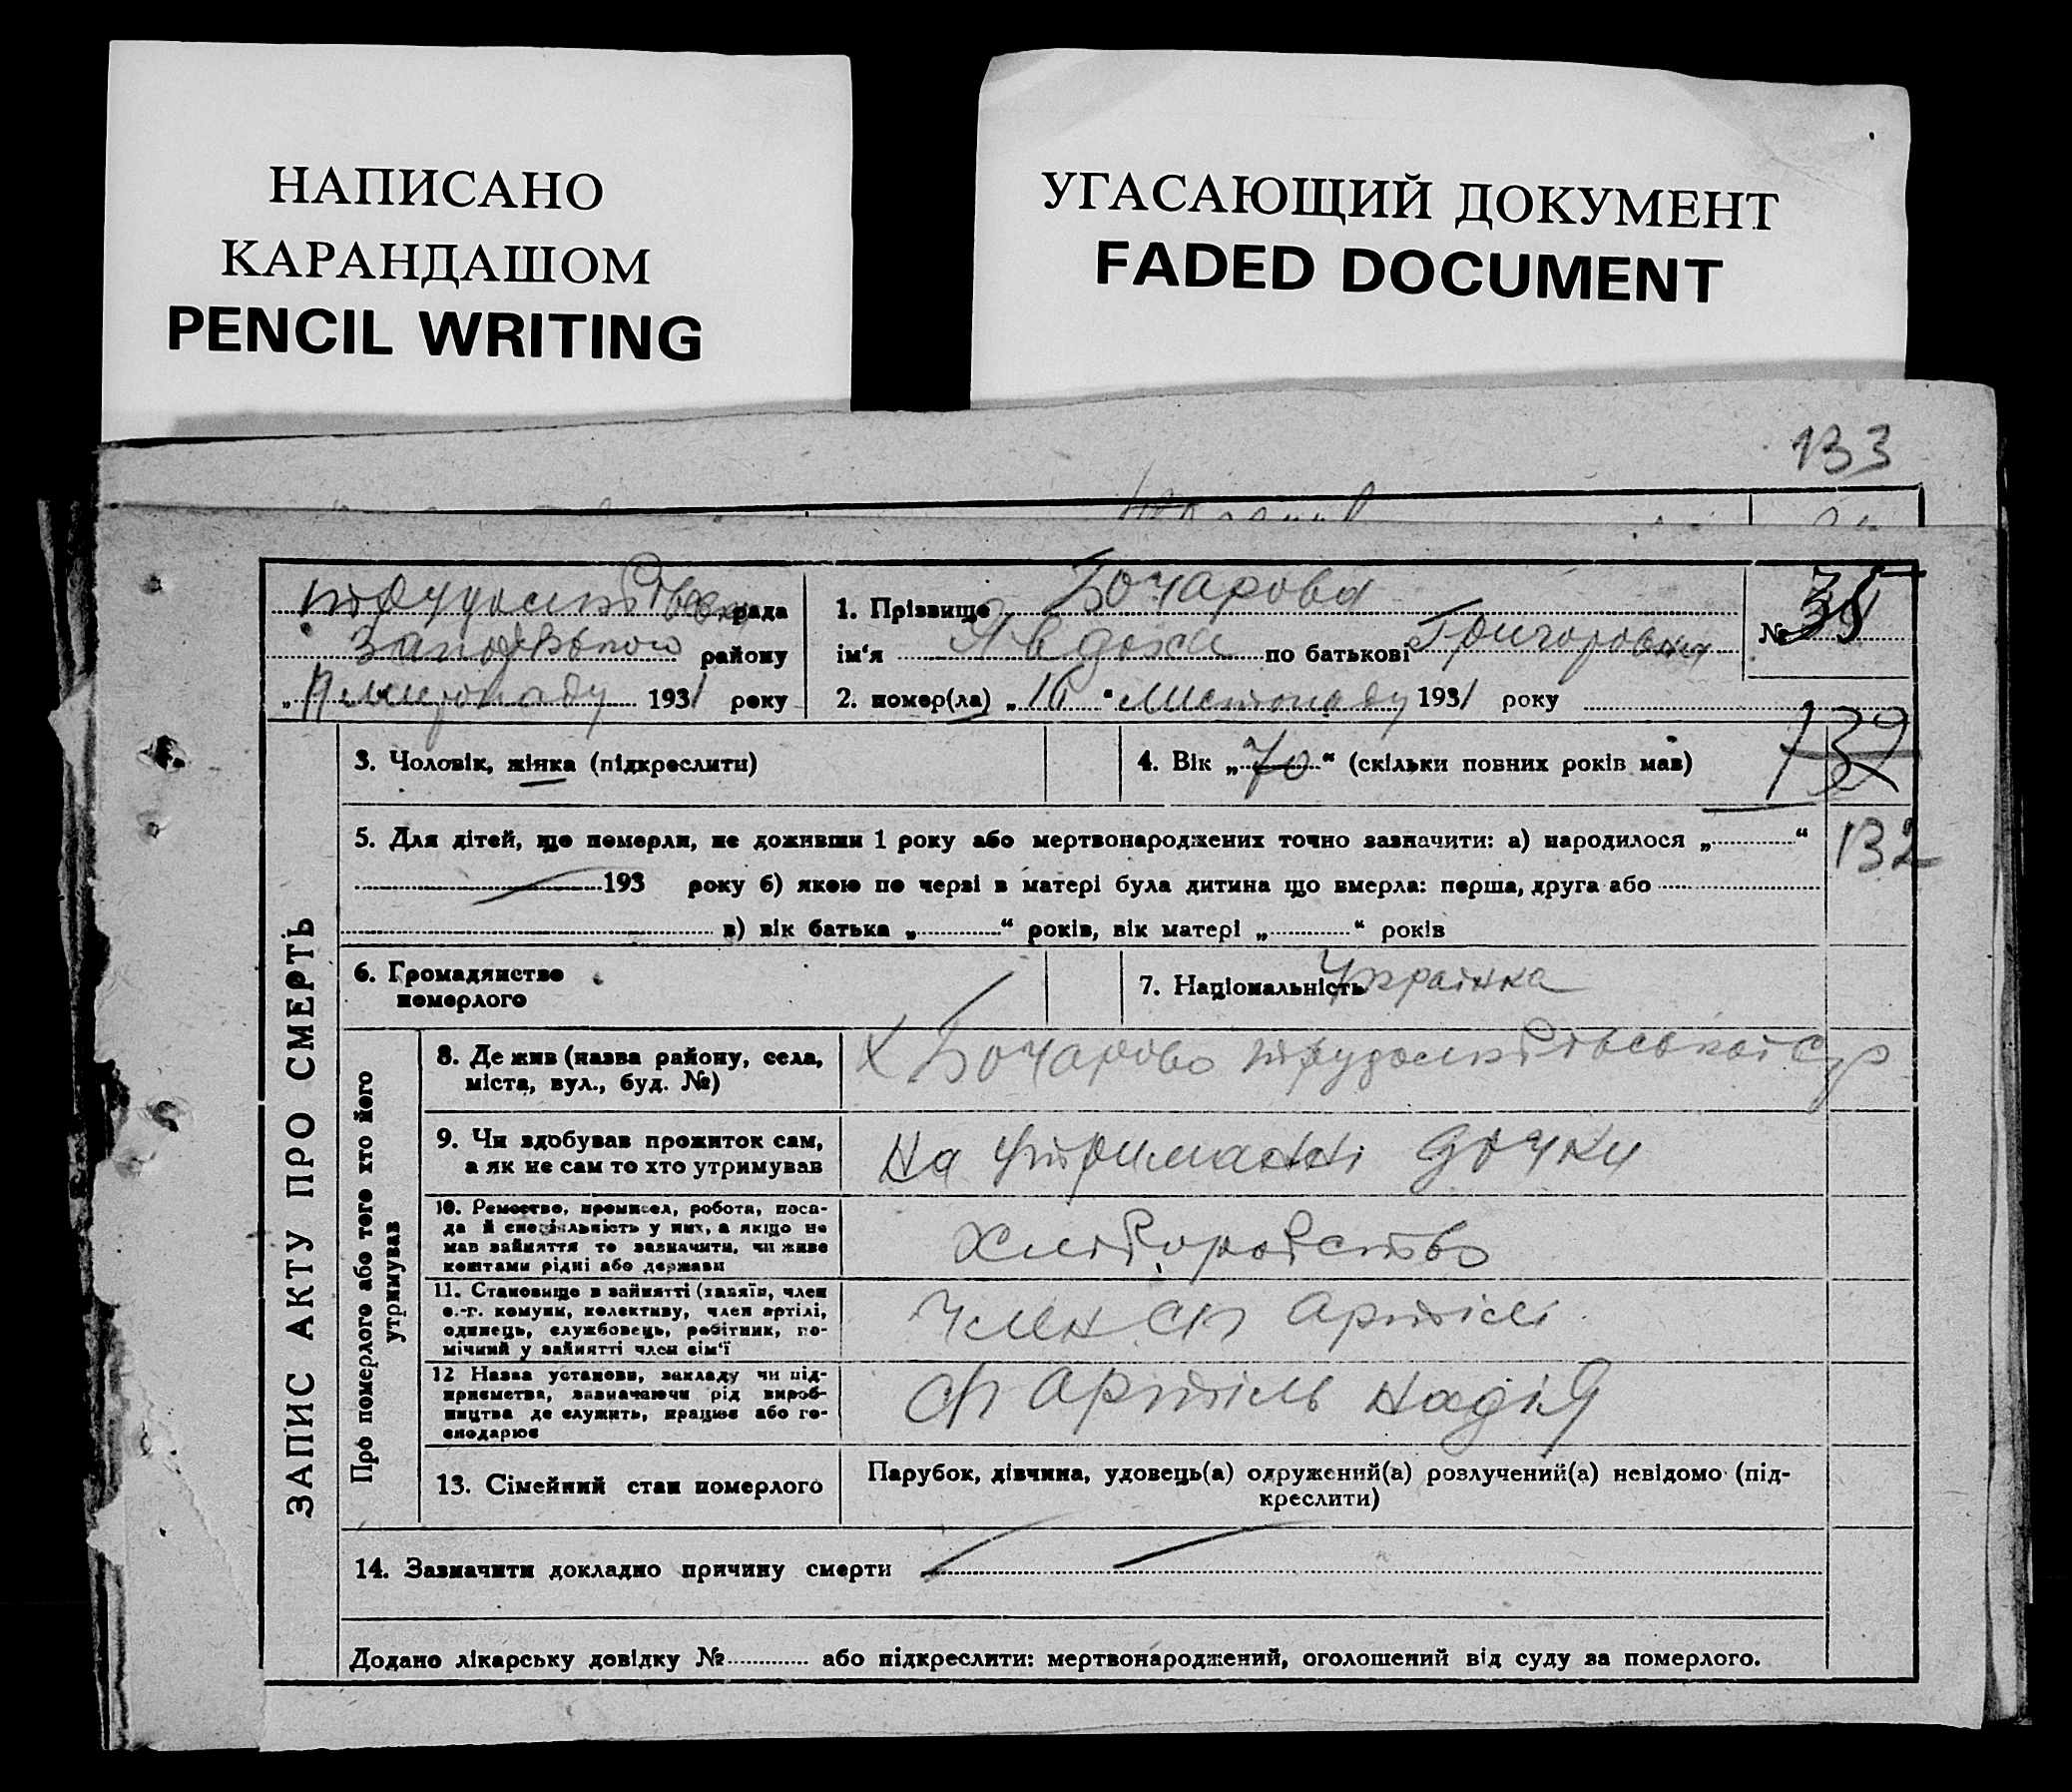 НАПИСАНО
КАРАНДАШОМ
PENCIL WRITING
УГАСАЮЩИЙ ДОКУМЕНТ
FADED DOCUMENT
133
рада
району
„ 1931 року
1. Прізвище Бочарова
ім'я Явдоха по батькові Григоровна
2. помер(ла) „16 " Листопаду 1931 року
№ 35
3. Чоловік, жінка (підкреслити)
4. Вік „70" (скільки повних років мав)
132
5. Для дітей, що померли, не доживши 1 року або мертвонароджених точно зазначити: а) народилося „ "
132
193 року б) якою по черзі в матері була дитина що вмерла: перша, друга або
в) вік батька „ " років, вік матері „ " років
6. Громадянство
померлого
7. Національність Українка
ЗАПИС АКТУ ПРО СМЕРТЬ
Про померлого або того хто його
утримував
8. Де жив (назва району, села,
міста, вул., буд. №)
Х Бочарово
9. Чи здобував прожиток сам,
а як не сам то хто утримував
На утриманні дочки
10. Ремество, промисел, робота, поса-
да й спеціяльність у них, а якщо не
мав зайняття то зазначити, чи живе
коштами рідні або держави
Хліборобство
11. Становище в зайнятті (хазяїн, член
с.-г. комуни, колективу, член артілі,
одинець, службовець, робітник, по-
мічний у зайнятті член сім'ї
Член СГ Артілі
12 Назва установи, закладу чи під-
приємства, зазначаючи рід вироб-
ництва де служить, працює або го-
сподарює
СГ Артіль Надія
13. Сімейний стан померлого
Парубок, дівчина, удовець(а) одружений(а) розлучений(а) невідомо (під-
креслити)
14. Зазначити докладно причину смерти
Додано лікарську довідку № або підкреслити: мертвонароджений, оголошений від суду за померлого.